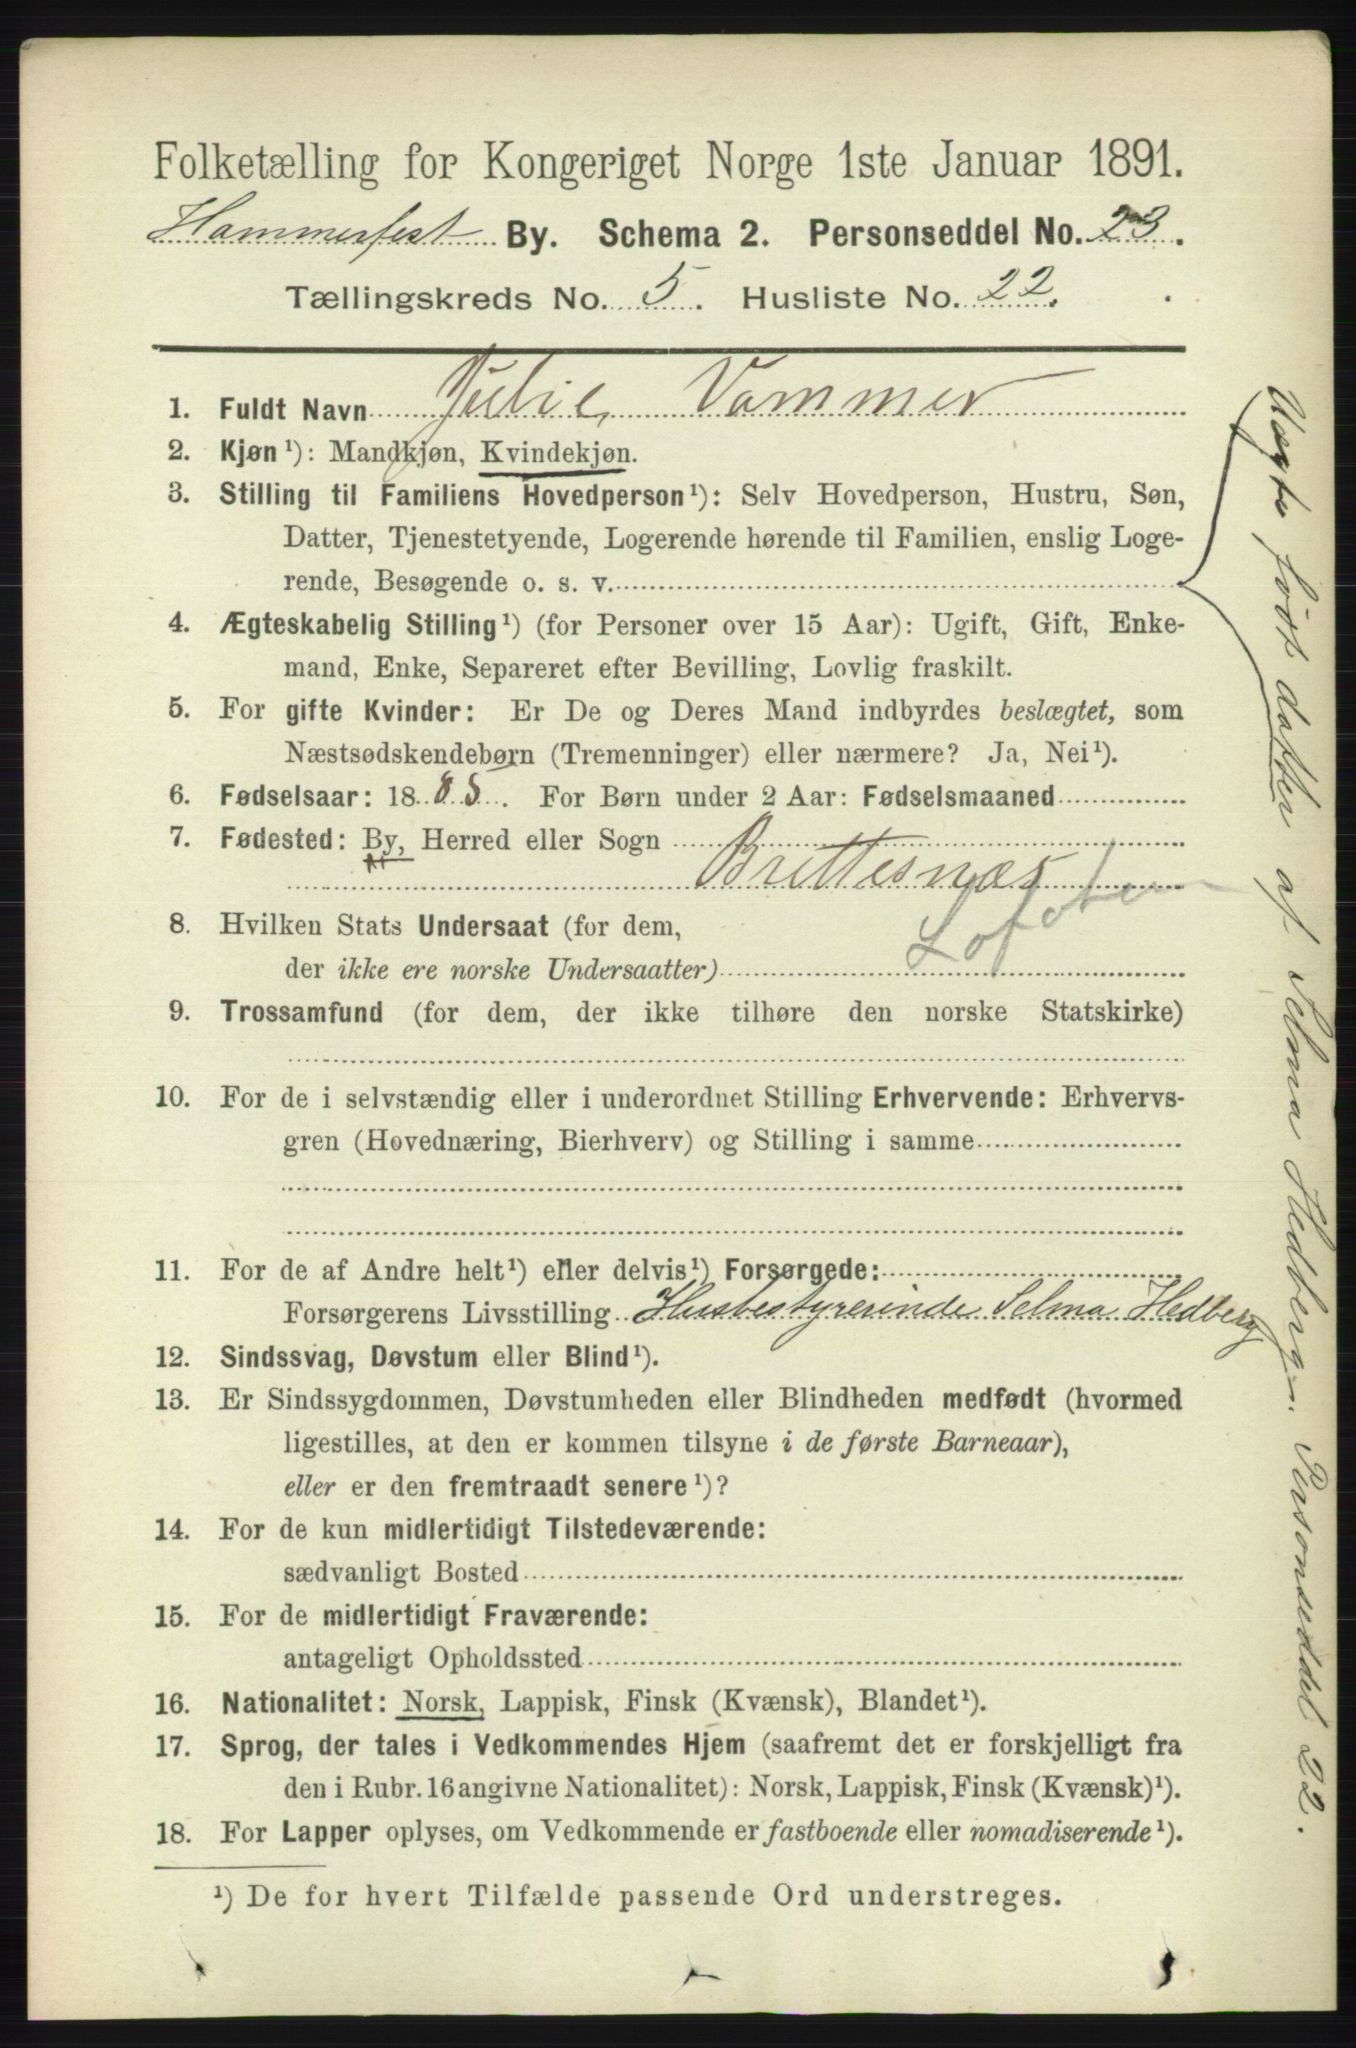 Folketælling for Kongeriget Norge 1ste Januar 1891.
Hammerfest By. Schema 2. Personseddel No. 23.
Tællingskreds No. 5. Husliste No. 22.
1. Fuldt Navn Julie Vammer
2. Kjøn¹): Mandkjøn, Kvindekjøn.
3. Stilling til Familiens Hovedperson¹): Selv Hovedperson, Hustru, Søn,
Datter, Tjenestetyende, Logerende hørende til Familien, enslig Loge-
rende, Besøgende o. s. v.
4. Ægteskabelig Stilling¹) (for Personer over 15 Aar): Ugift, Gift, Enke-
mand, Enke, Separeret efter Bevilling, Lovlig fraskilt.
5. For gifte Kvinder: Er De og Deres Mand indbyrdes beslægtet, som
Næstsødskendebørn (Tremenninger) eller nærmere? Ja, Nei¹).
6. Fødselsaar: 1885. For Børn under 2 Aar: Fødselsmaaned
7. Fødested: By, Herred eller Sogn
Brettesnæs
Lofoten
8. Hvilken Stats Undersaat (for dem,
der ikke ere norske Undersaatter)
9. Trossamfund (for dem, der ikke tilhøre den norske Statskirke)
10. For de i selvstændig eller i underordnet Stilling Erhvervende: Erhvervs-
gren (Hovednæring, Bierhverv) og Stilling i samme
11. For de af Andre helt¹) eller delvis¹) Forsørgede:
Forsørgerens Livsstilling Husbestyrerinde Selma Hedberg
12. Sindssvag, Døvstum eller Blind¹).
13. Er Sindssygdommen, Døvstumheden eller Blindheden medfødt (hvormed
ligestilles, at den er kommen tilsyne i de første Barneaar),
eller er den fremtraadt senere¹)?
14. For de kun midlertidigt Tilstedeværende:
sædvanligt Bosted
15. For de midlertidigt Fraværende:
antageligt Opholdssted
16. Nationalitet: Norsk, Lappisk, Finsk (Kvænsk), Blandet¹).
17. Sprog, der tales i Vedkommendes Hjem (saafremt det er forskjelligt fra
den i Rubr. 16 angivne Nationalitet): Norsk, Lappisk, Finsk (Kvænsk)¹).
18. For Lapper oplyses, om Vedkommende er fastboende eller nomadiserende¹).
¹) De for hvert Tilfælde passende Ord understreges.
Uægte født datter af Selma Hedberg. Personseddel 22.